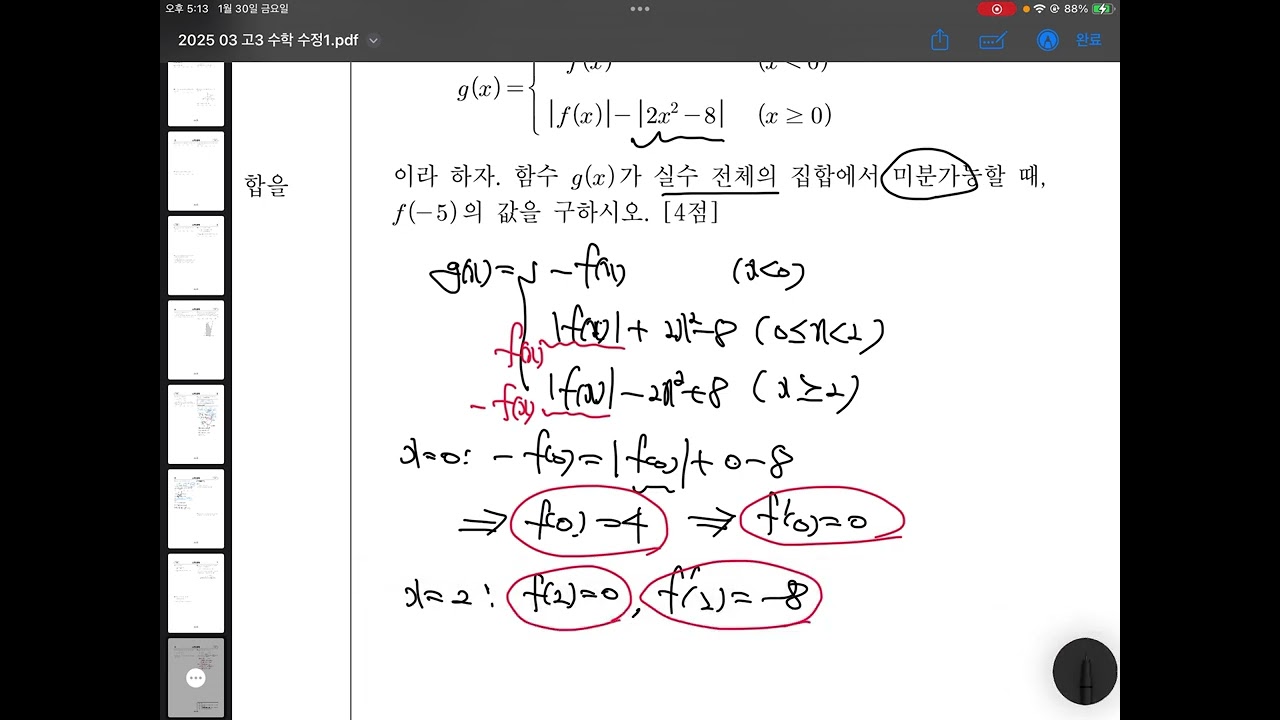 오후 5:13 1월 30일 금요일
88%
2025 03 고3 수학 수정1.pdf
완료
합을
g(x)=
|f(x)|−|2x²−8| (x≥0)
이라 하자. 함수 g(x)가 실수 전체의 집합에서 미분가능할 때,
f(−5)의 값을 구하시오. [4점]
g(x)= −f(x) (x<0)
|f(x)|+2x²−8 (0≤x<2)
f(x)
|f(x)|−2x²+8 (x≥2)
−f(x)
x=0: −f(0)=|f(0)|+0−8
⇒ f(0)=4 ⇒ f'(0)=0
x=2: f(2)=0, f'(2)=−8